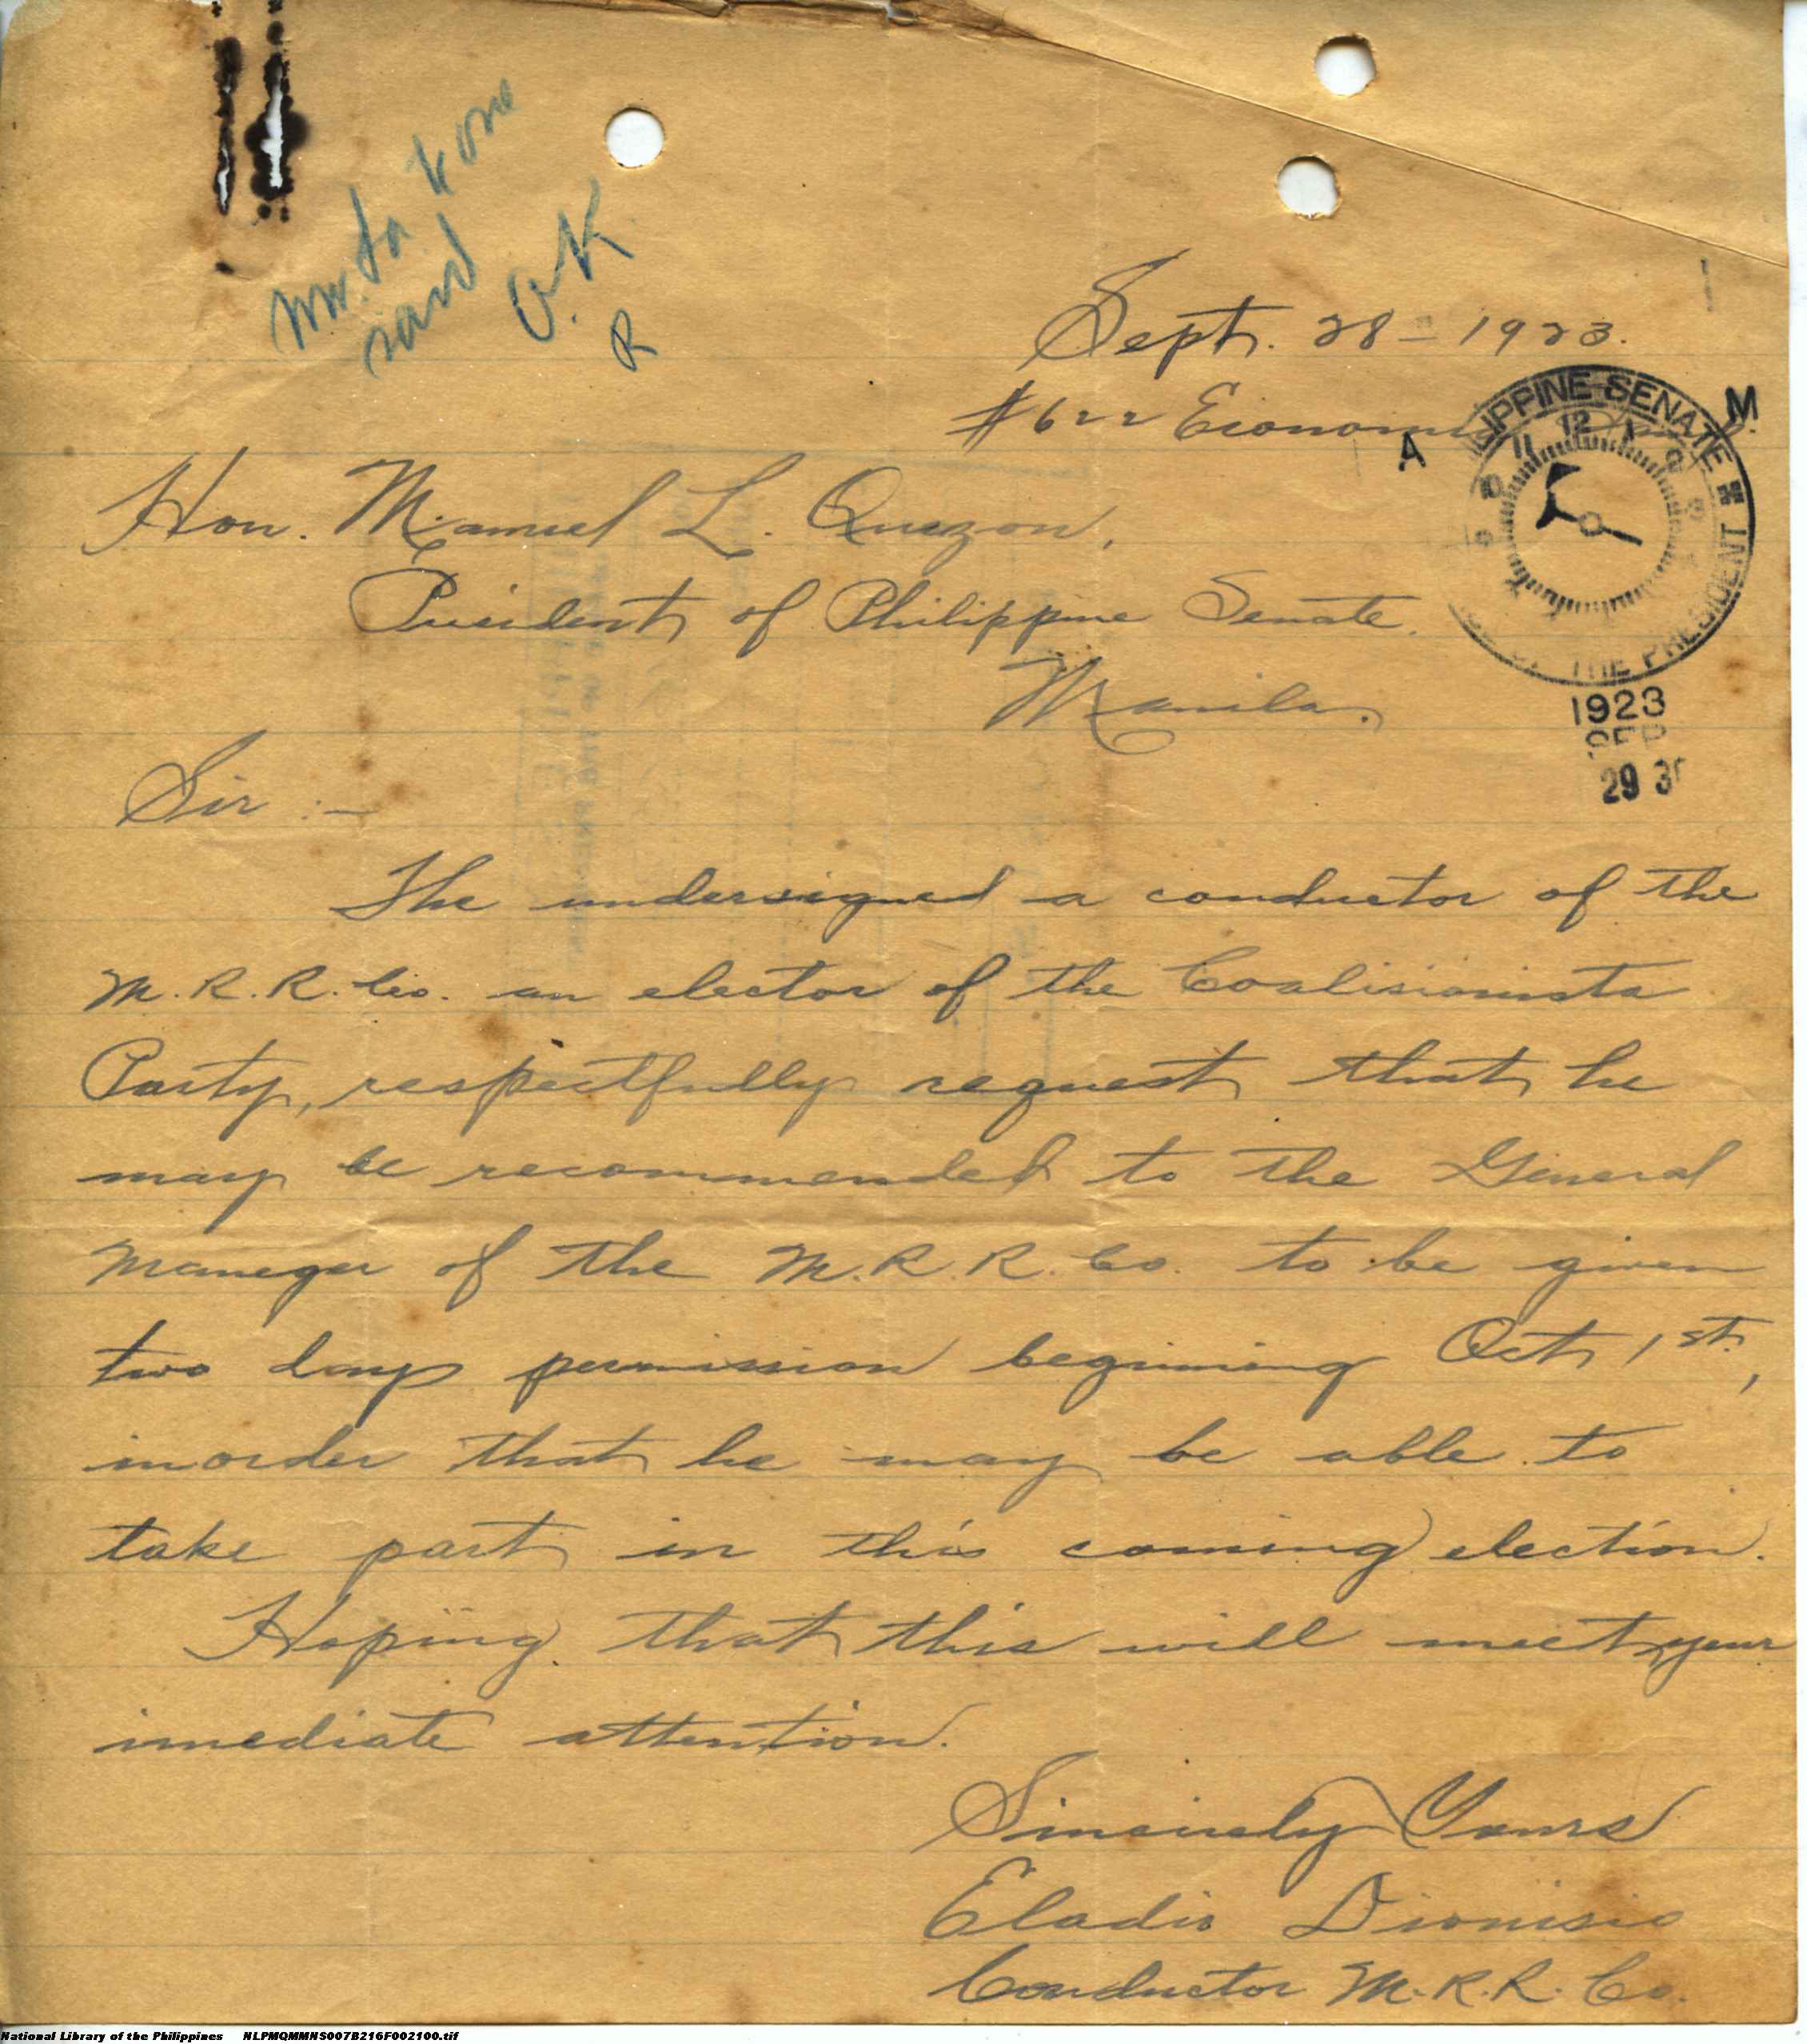 O.K.
R
Sept. 28 - 1923.
#622 Economia
Hon. Manuel L. Quezon,
President of Philippine Senate.
Manila.
A M
PHILIPPINE SENATE
THE PRESIDENT
1923
SEP
29
Sir :-
The undersigned a conductor of the
M.R.R. Co. an elector of the Coalisionista
Party, respectfully request that he
may be recommended to the General
Maneger of the M.R.R. Co. to be given
two days permission beginning Oct 1st,
inorder that he may be able to
take part in this coming election.
Hoping that this will meet your
imediate attention.
Sincirely Yours
Eladio Dionisio
Conductor M.R.R. Co.
National Library of the Philippines NLPMQMMNS007B216F002100.tif